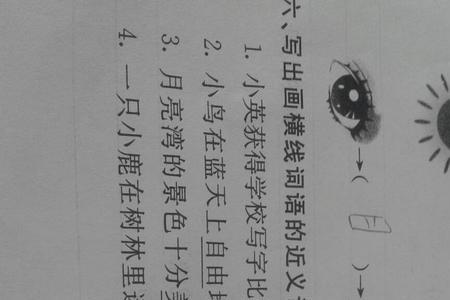 →( 目 )→
六、写出画横线词语的近义
1. 小英获得学校写字比
2. 小鸟在蓝天上自由地
3. 月亮湾的景色十分美
4. 一只小鹿在树林里